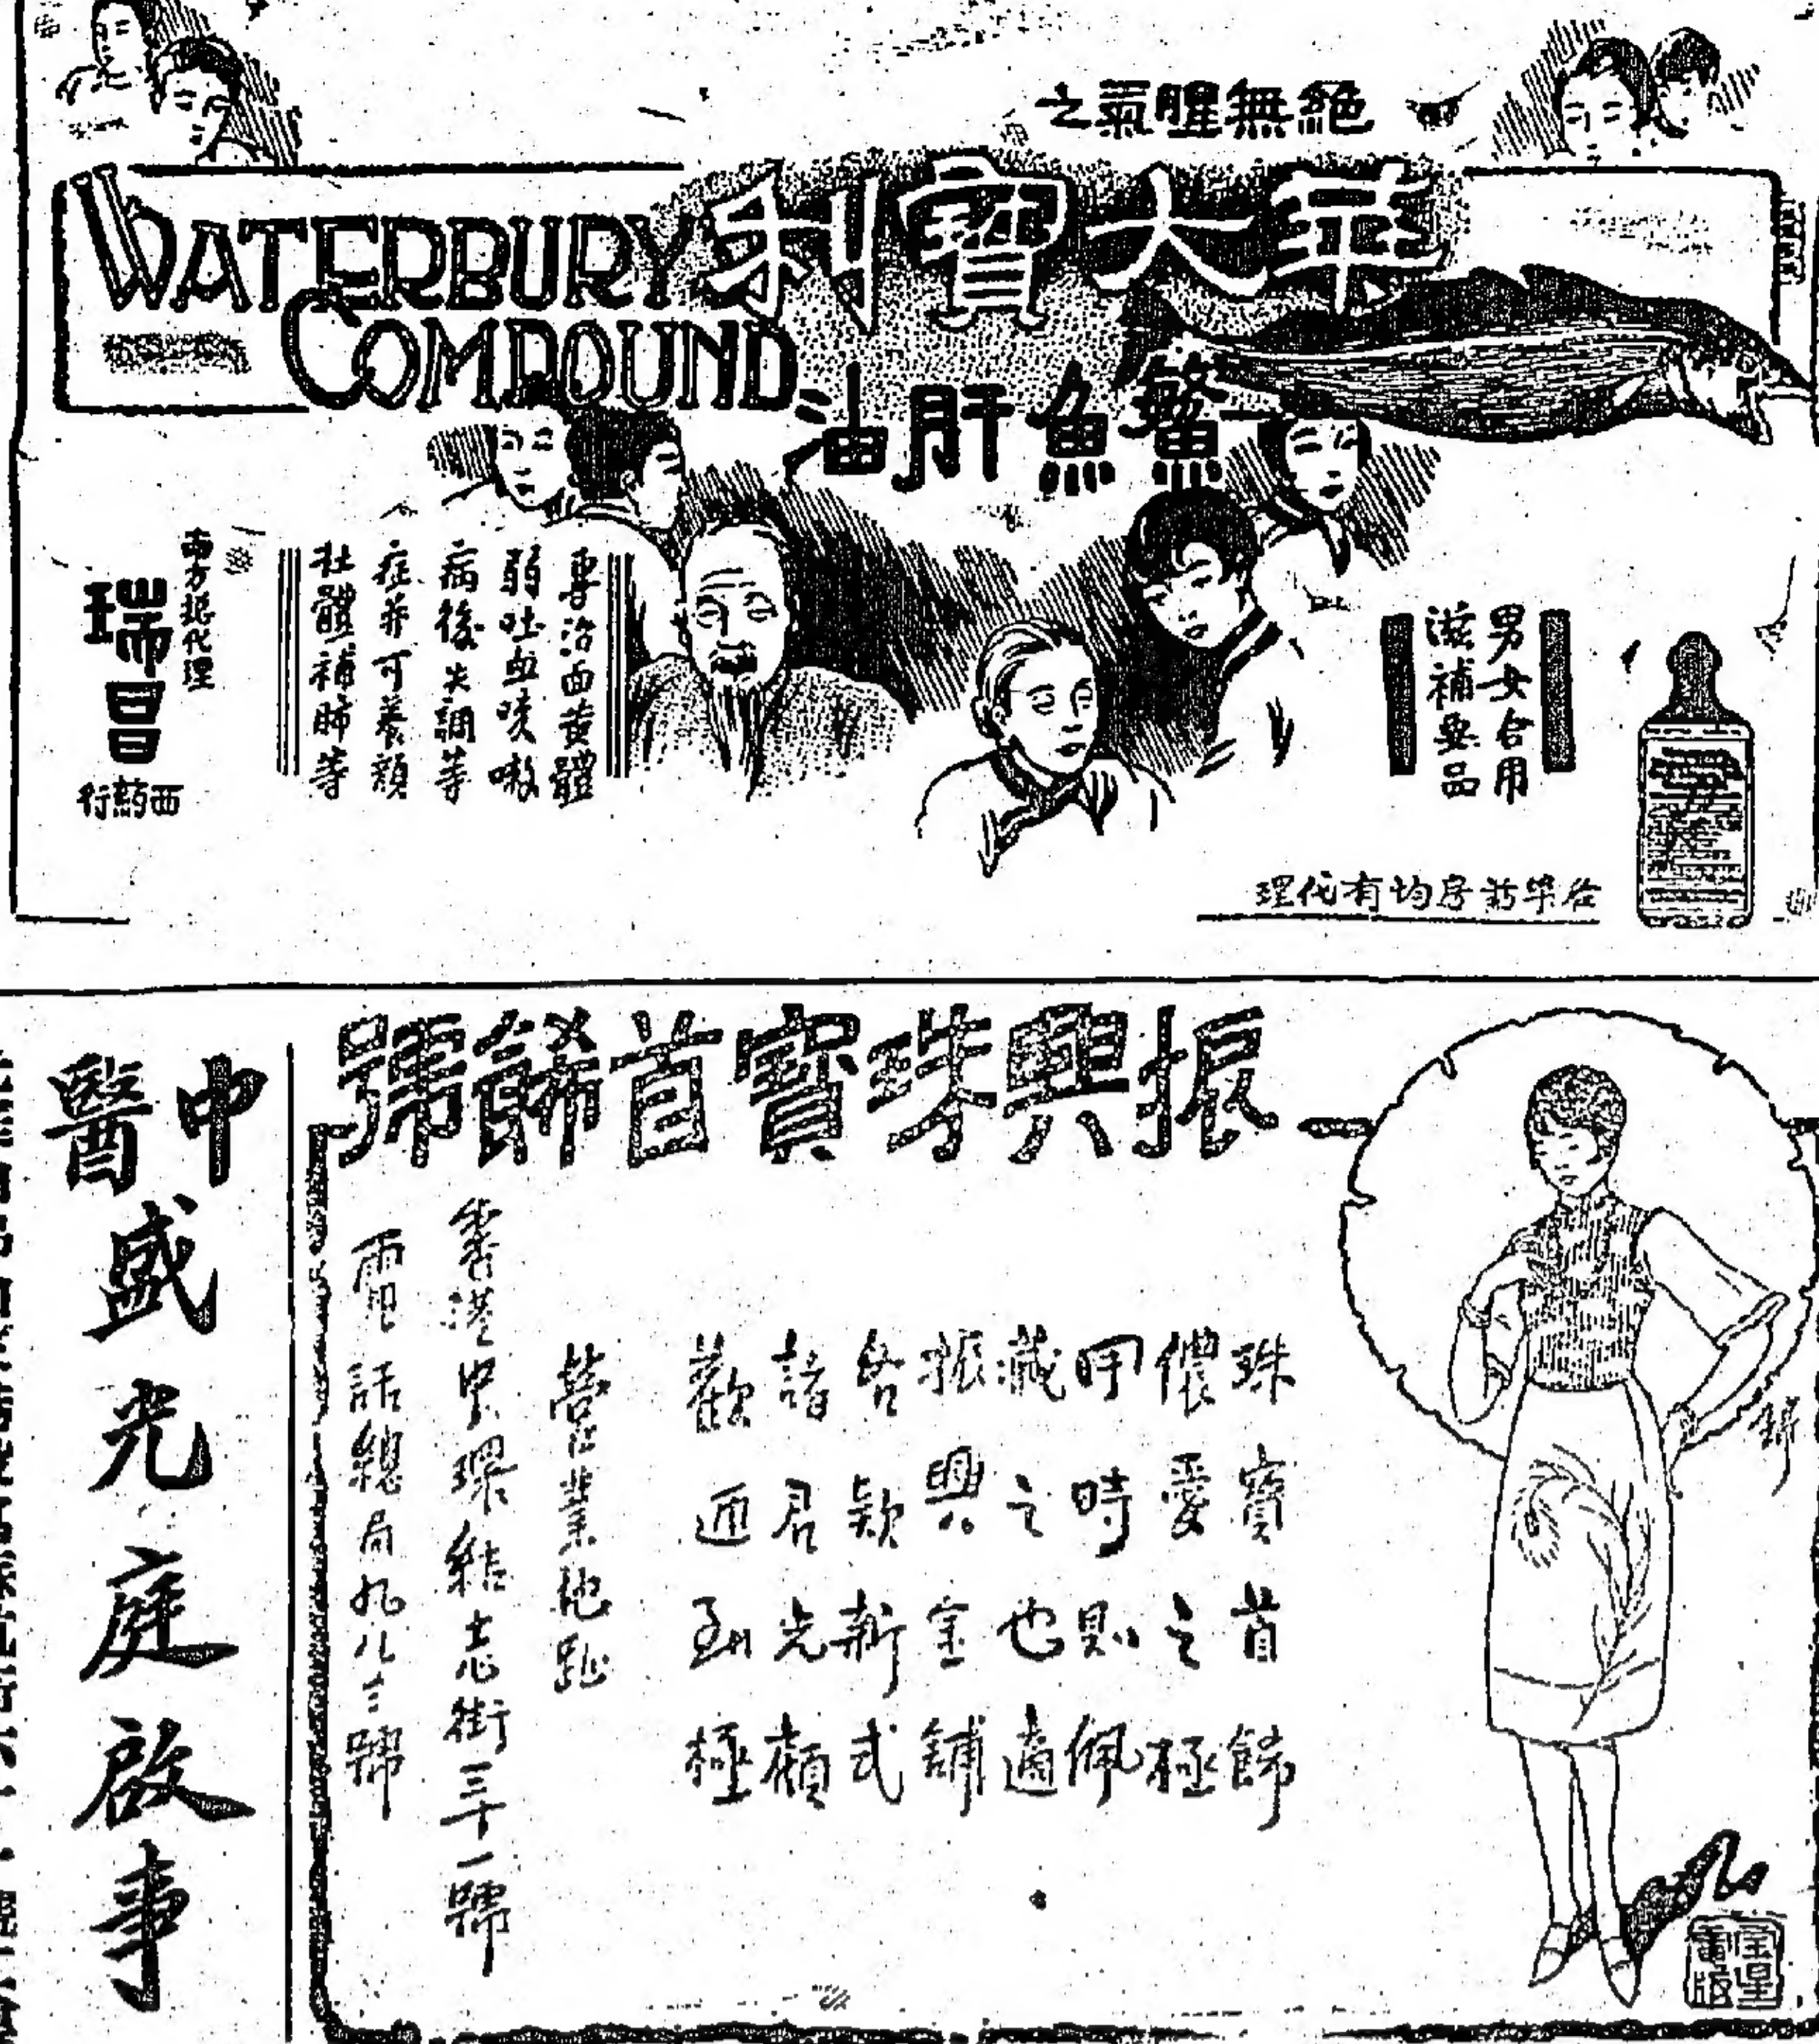 絕無腥氣之
華大寶利
WATERBURY
COMPOUND
鰵魚肝油
男女合用
滋補要品
專治面黃體
弱吐血咳嗽
病後失調等
症并可養顏
壯體補肺等
南方總代理
瑞昌
西葯行
各埠葯房均有代理
振興珠寶首餙號
珠寶首餙
儂愛之極
時則佩
藏之也適
振興金舖
各欵新式
諸君光顧
歡迎到極
營業地趾
香港中環結志街三十一號
電話總局九八三號
中醫
盛光庭啟事